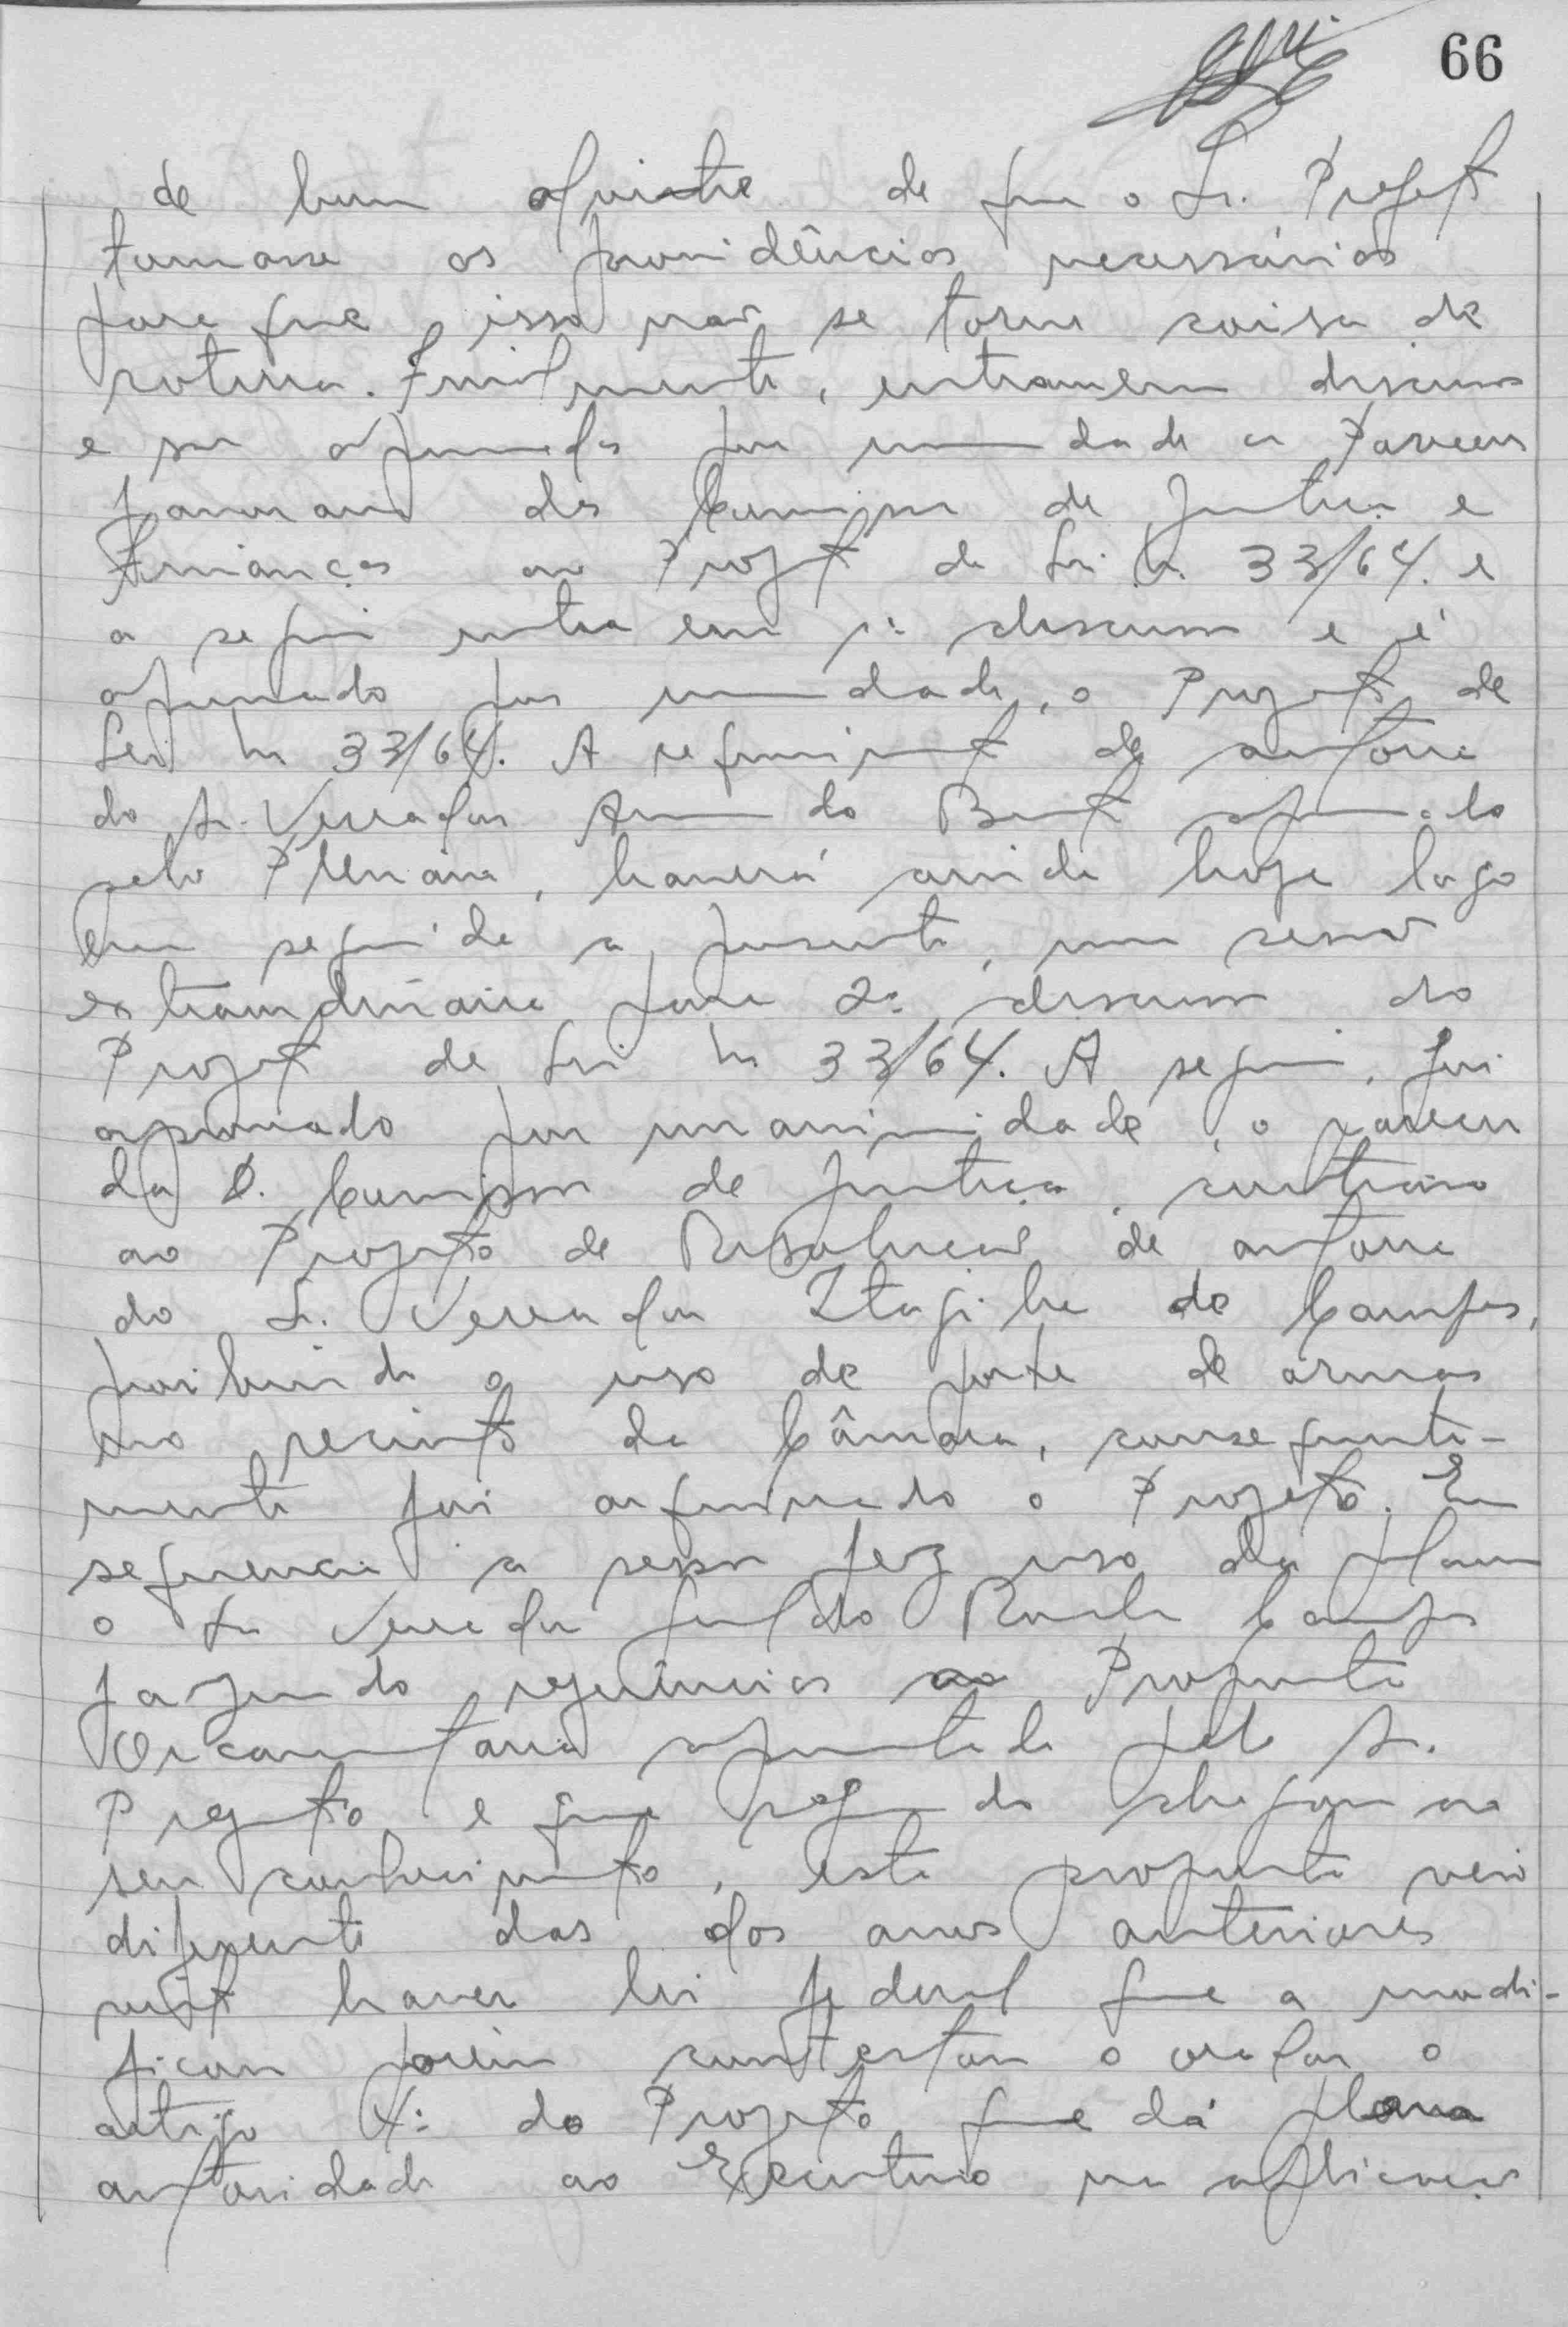 66
de bom alvitre de que o Sr. Prefeito
tomasse as providências necessárias
para que isso não se torne coisa de
rotina. Finalmente, entraram em discussão
e são aprovados por unanimidade os Pareceres
favoráveis das Comissões de Justiça e
Finanças ao Projeto de Lei n. 33/64. e
a seguir entra em 1ª discussão e é
aprovado por unanimidade, o Projeto de
Lei n 33/64. A requerimento de autoria
do Sr. Vereador Armando aprovado
pelo Plenário, haverá ainda hoje logo
em seguida a presente, uma sessão
extraordinária para 2ª discussão do
Projeto de Lei n 33/64. A seguir, foi
aprovado por unanimidade, o parecer
da D. Comissão de Justiça, contrário
ao Projeto de Resolução de autoria
do Sr. Vereador Itagiba de Campos,
proibindo o uso de porte de armas
no recinto da Câmara, consequente-
mente foi arquivado o Projeto. Em
sequencia a sessão fez uso da palavra
o Sr Vereador Geraldo Campos
fazendo referências a Proposta
Orçamentária apresentada pelo Sr.
Prefeito e que segundo chegou ao
seu conhecimento, esta proposta veio
diferente das dos anos anteriores
visto haver lei federal que a modi-
ficou porém contestou o orador o
artigo 4º do Projeto que dá plena
autoridade ao Executivo na aplicação